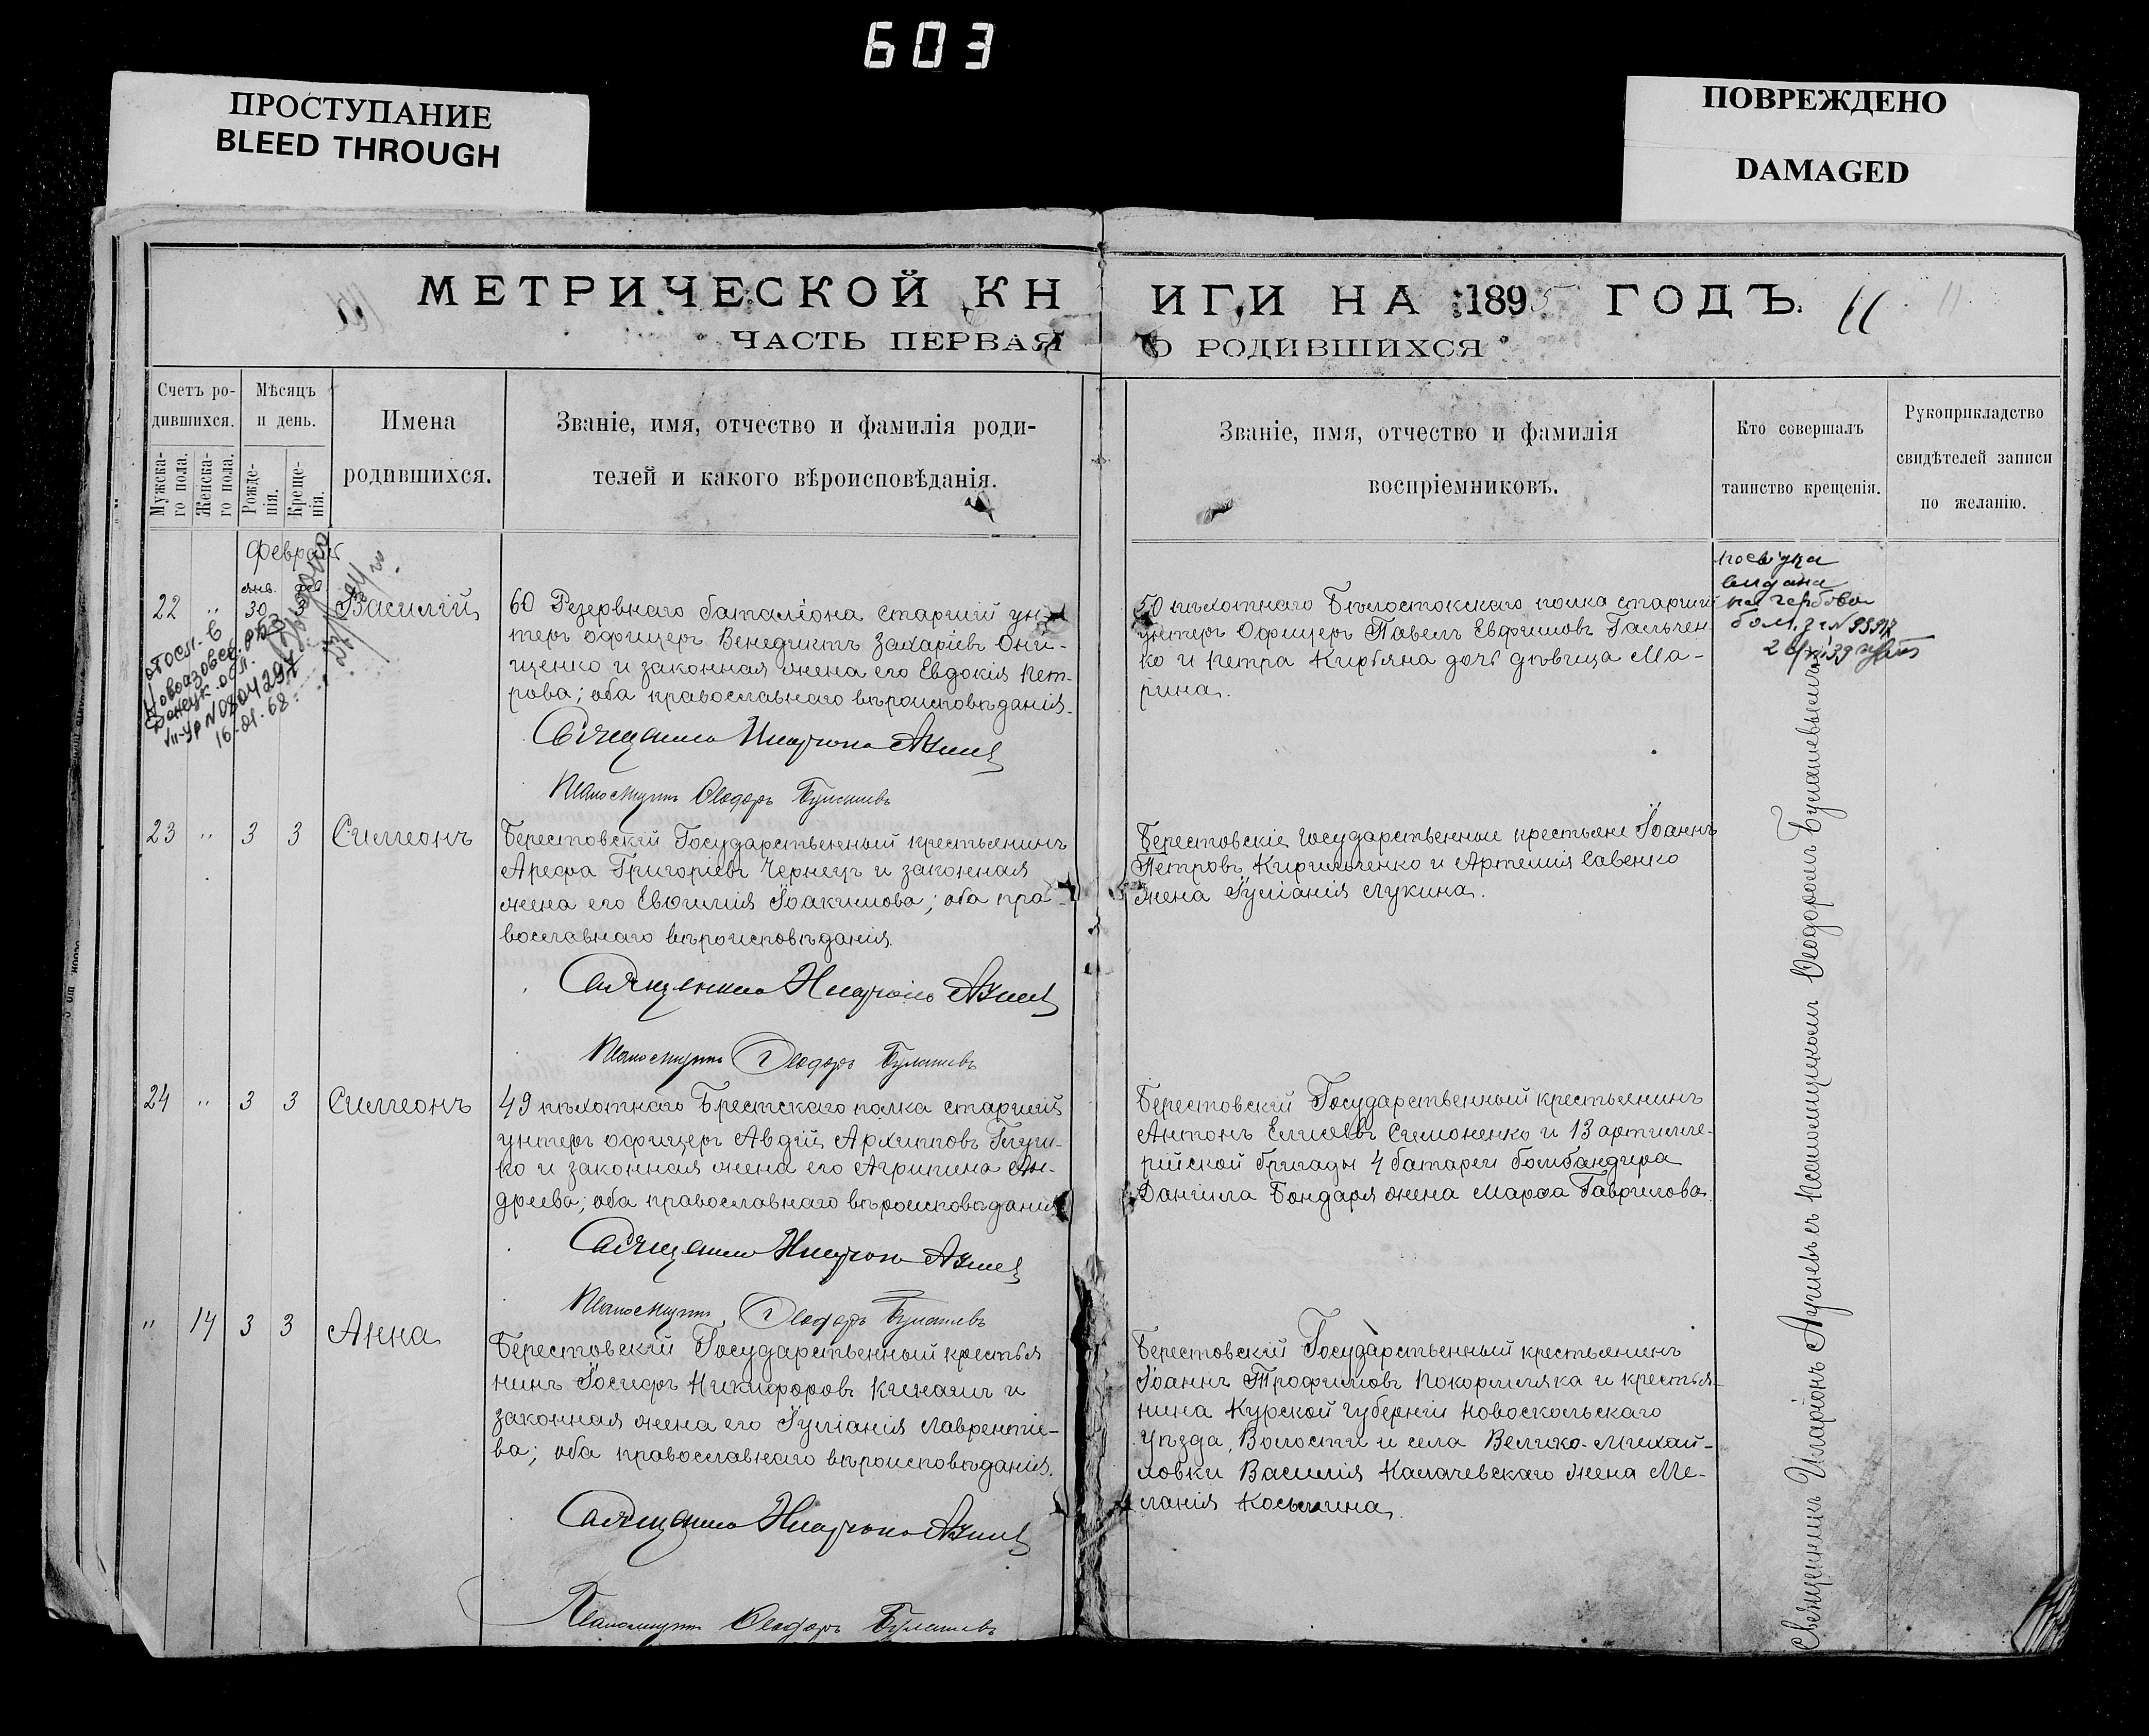 603
ПРОСТУПАНИЕ
BLEED THROUGH
ПОВРЕЖДЕНО
DAMAGED
МЕТРИЧЕСКОЙ КН
ИГИ НА 1895 ГОДЪ.
11
ЧАСТЬ ПЕРВАЯ
О РОДИВШИХСЯ
Счетъ ро-
дившихся.
Мужска-
го пола.
Женска-
го пола.
Мѣсяцъ
и день.
Рожде-
нія.
Креще-
нія.
Имена
родившихся.
Званіе, имя, отчество и фамилія роди-
телей и какого вѣроисповѣданія.
Званіе, имя, отчество и фамилія
воспріемниковъ.
Кто совершалъ
таинство крещенія.
Рукоприкладство
свидѣтелей записи
по желанію.
янв.
22 " 30 3 Василій
Новоазовск.
Донецк. обл.
16-01-68
60 Резервнаго баталіона старшій ун-
теръ офицеръ Венедиктъ Захаріевъ Они-
щенко и законная жена его Евдокія Пет-
рова; оба православнаго вѣроисповѣданія.
Священникъ Иларіонъ
Псаломщикъ Ѳеодоръ
50 пѣхотнаго Бѣлостокскаго полка старшій
унтеръ Офицеръ Павелъ Евфимовъ Гальчен-
ко и Петра Кирьяна дочь дѣвица Ма-
рина.
23 " 3 3 Симеонъ
Берестовскій Государственный крестьянинъ
Арефа Григоріевъ Чернецъ и законная
жена его Евѳимія Іоакимова; оба пра-
вославнаго вѣроисповѣданія.
Священникъ Иларіонъ
Псаломщикъ Ѳеодоръ
Берестовскіе Государственные крестьяне Іоаннъ
Петровъ Кирильченко и Артемія Савенко
жена Іуліанія Лукина.
24 " 3 3 Симеонъ
49 пѣхотнаго Брестскаго полка старшій
унтеръ офицеръ Авдій Архиповъ
ко и законная жена его Агрипина Ан-
дреева; оба православнаго вѣроисповѣданія
Священникъ Иларіонъ
Псаломщикъ Ѳеодоръ
Берестовскій Государственный крестьянинъ
Антонъ Елисѣевъ Симоненко и 13 артилле-
рійской бригады 4 батареи бомбандира
Даніила Бондаря жена Марѳа Гаврилова.
" 14 3 3 Анна
Берестовскій Государственный крестья
нинъ Іосифъ Никифоровъ и
законная жена его Іуліанія Лаврентіе-
ва; оба православнаго вѣроисповѣданія.
Священникъ Иларіонъ
Псаломщикъ Ѳеодоръ
Берестовскій Государственный крестьянинъ
Іоаннъ Трофимовъ Покормляка и крестья-
нина Курской Губерніи Новоскольскаго
Уѣзда, Волости и села Велико-Михай-
ловки Василія Калачевскаго жена Ме-
ланія Косьмина.
Священникъ Иларіонъ съ Псаломщикомъ Ѳеодоромъ